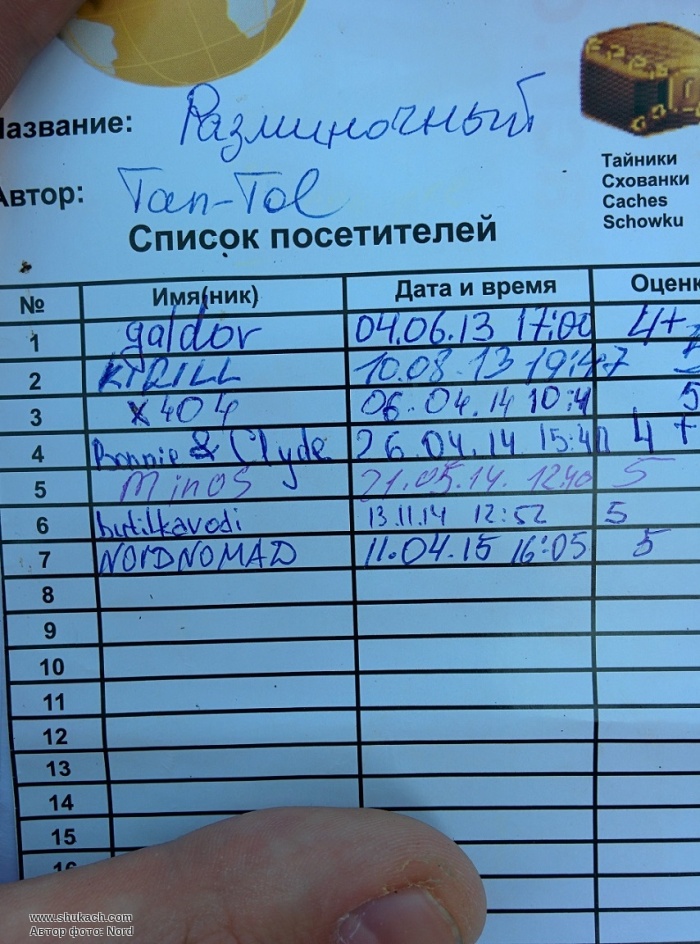 Название: Разминочный
Автор: Tan-Tol
Тайники
Схованки
Caches
Schowku
Список посетителей
№ Имя(ник) Дата и время Оценк
1 galdor 04.06.13 17:00 4+
2 KIRILL 10.08.13 19:47
3 x404 06.04.14 10:41 5
4 Bonnie & Clyde 26.04.14 15:41 4+
5 Minos 21.05.14. 12:40 5
6 butilkavodi 13.11.14 12:52 5
7 NORDNOMAD 11.04.15 16:05 5
8
9
10
11
12
13
14
15
16
www.shukach.com
Автор фото: Nord